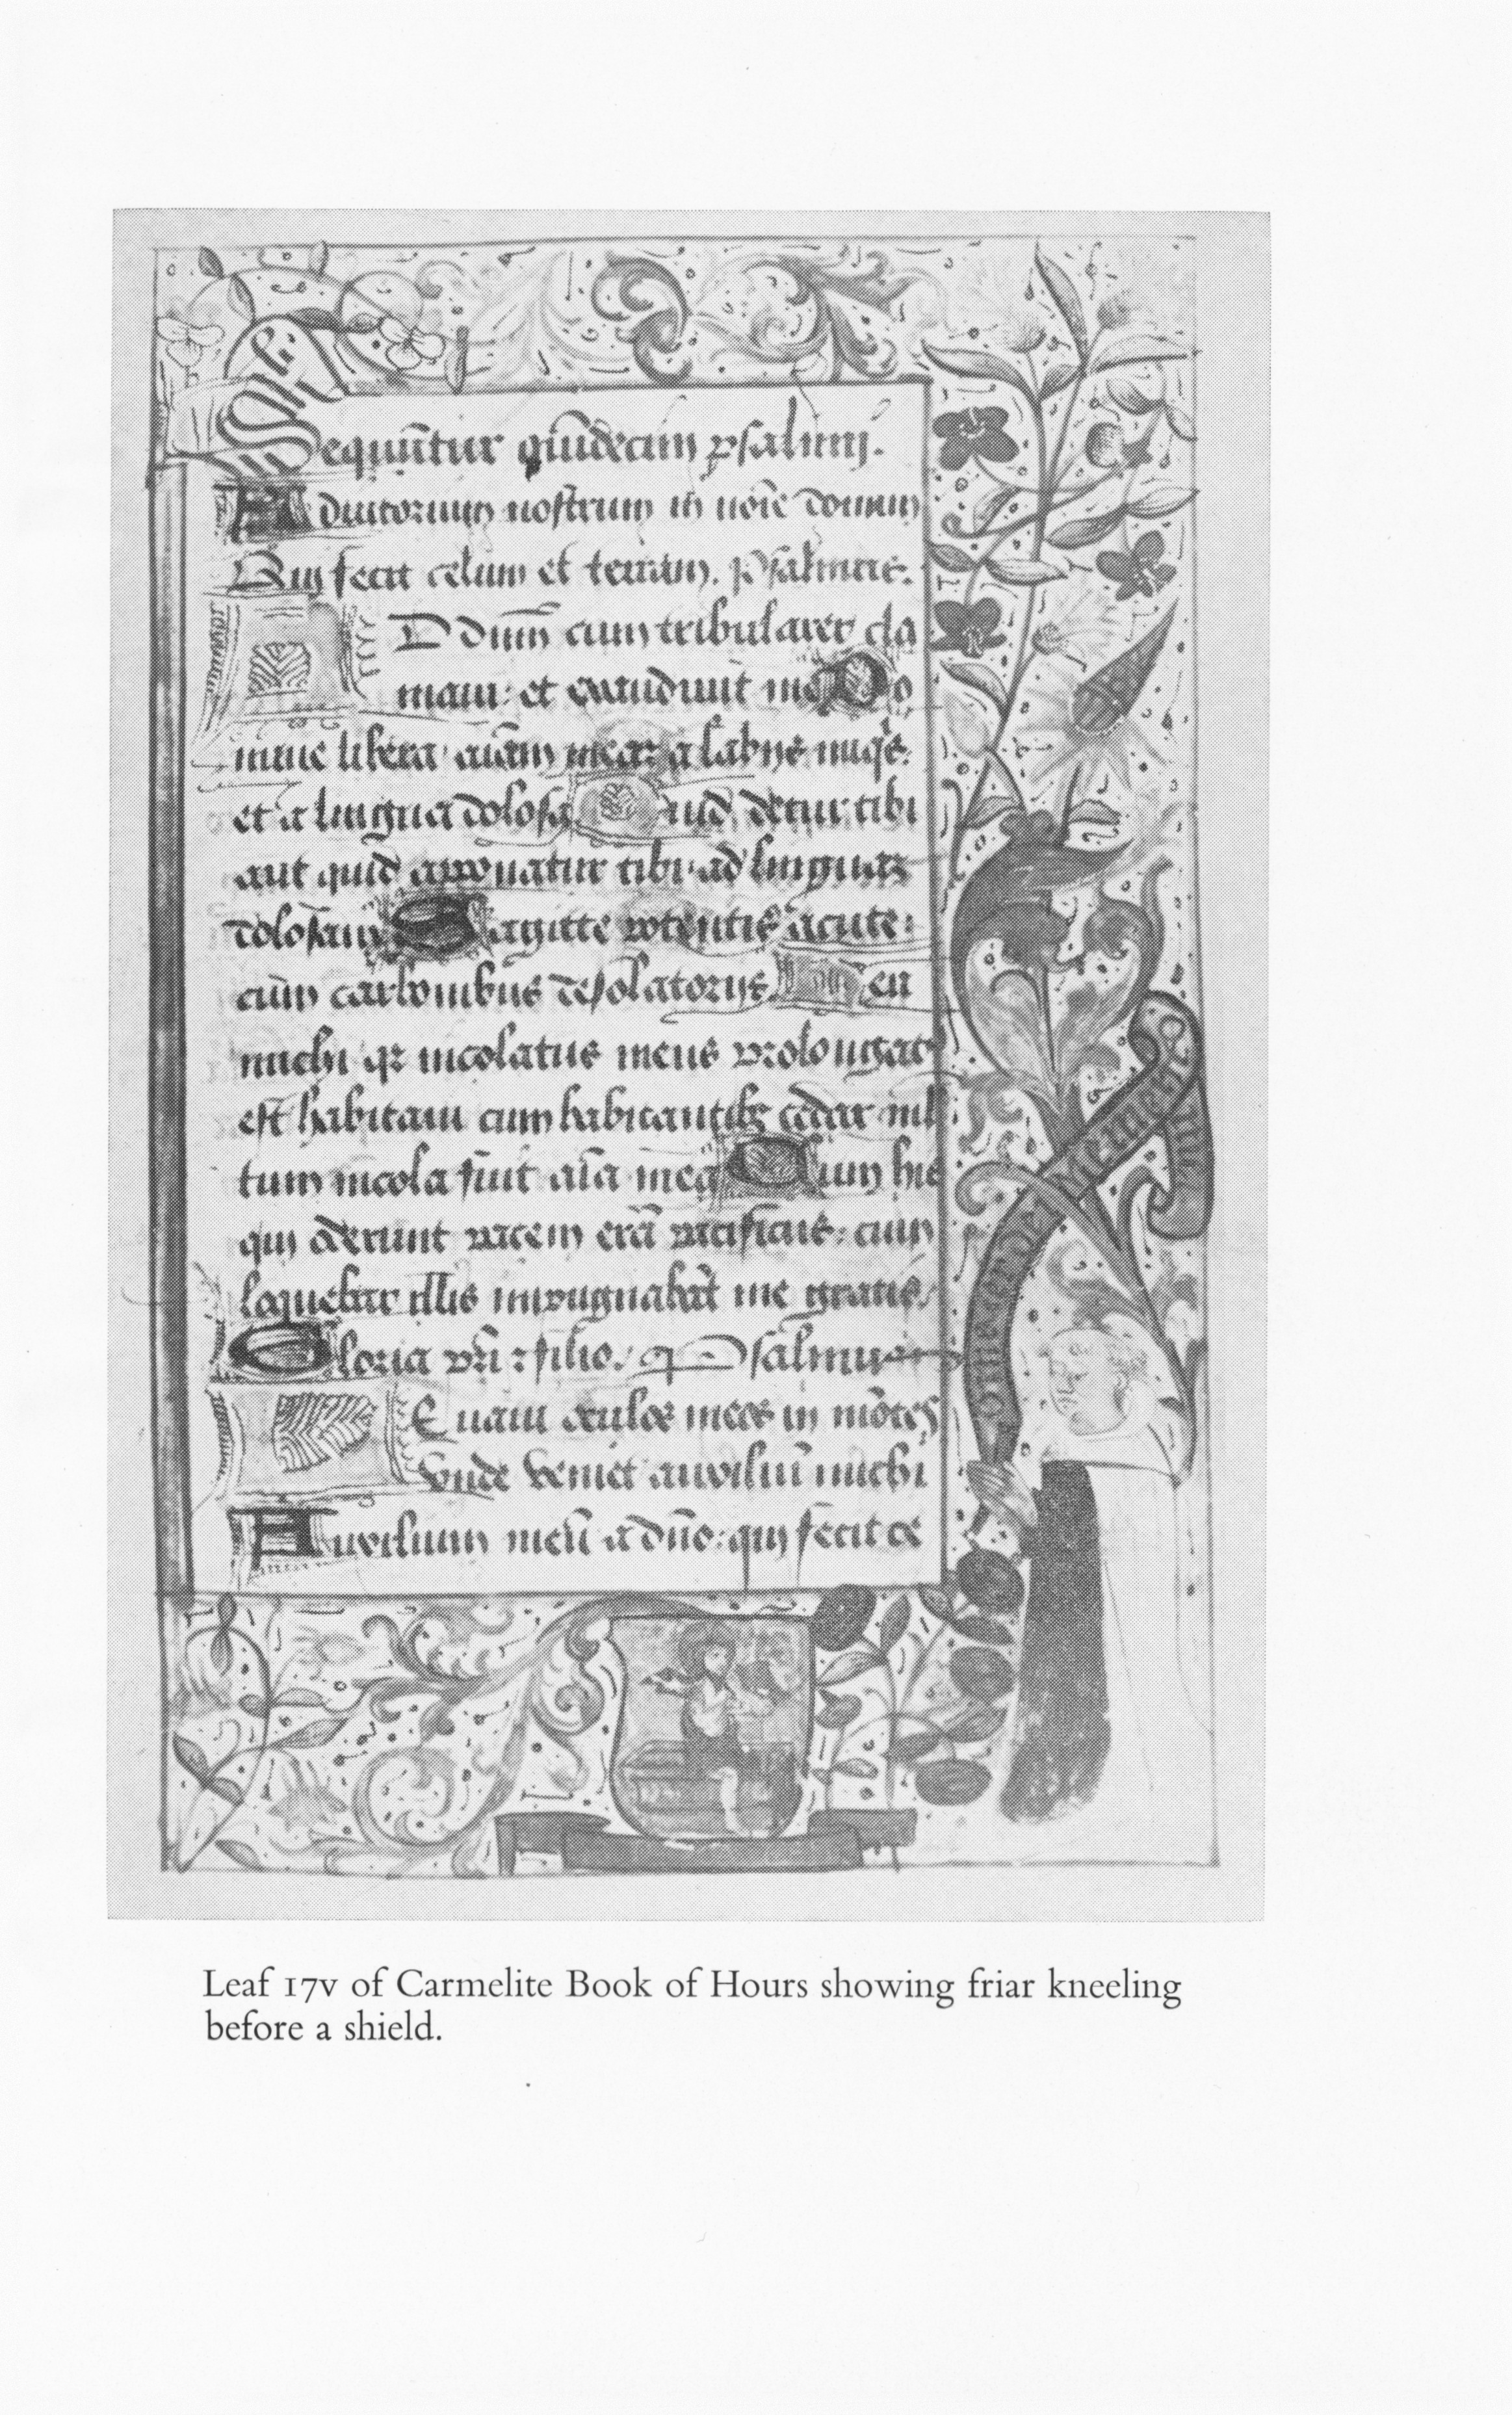 Sequūtur quīdecim psalmi.
Adiutorium nostrum in noīe domini
Qui fecit celum et terram. Psalmus.
AD dnm̄ cum tribularer cla
maui: et exaudiuit me Do
mine libera aīam meaz a labijs
et a lingua dolosa Quid detur tibi
aut quid apponatur tibi ad linguaz
dolosam Sagitte potentis acute:
cum carbonibus desolatorijs. Heu
michi qz incolatus meus prolongat9
est habitaui cum habitantibz cedar
tum incola fuit aīa mea Cum hiis
qui oderunt pacem erā pacificus: cum
loquebar illis impugnabāt me gratis.
Gloria pri z filio. Psalmus
LEuaui oculos meos in mōtes
vnde veniet auxiliū michi
Auxilium meū a dn̄o: qui fecit ce
miserere mei
Leaf 17v of Carmelite Book of Hours showing friar kneeling
before a shield.